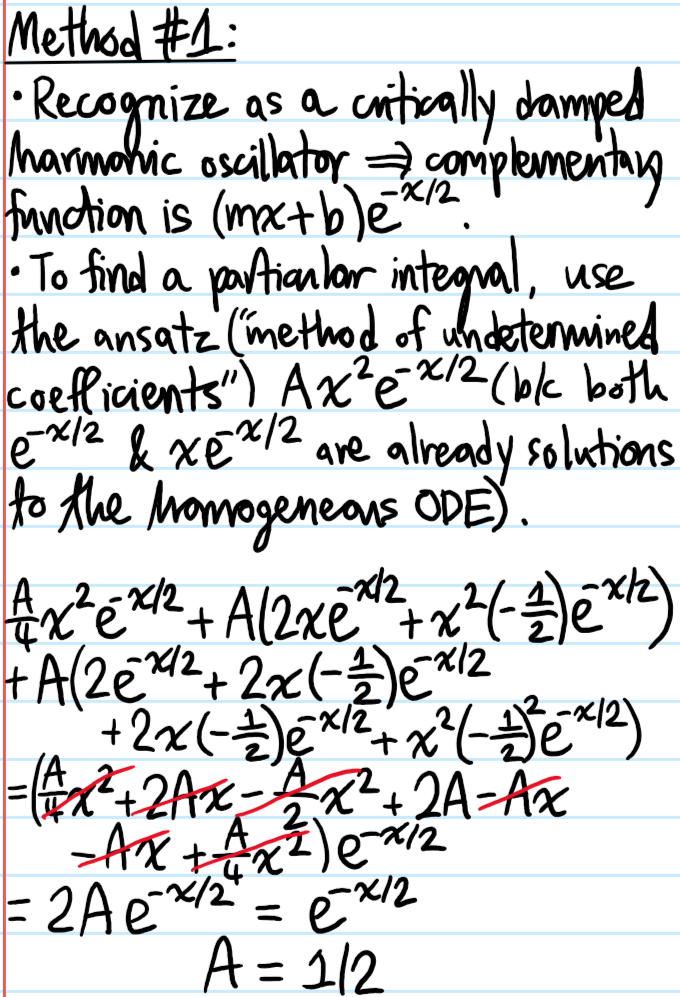 Method #1:
• Recognize as a critically damped
harmonic oscillator ⇒ complementary
function is (mx+b)e^{-x/2}.
• To find a particular integral, use
the ansatz ("method of undetermined
coefficients") Ax²e^{-x/2} (b/c both
e^{-x/2} & xe^{-x/2} are already solutions
to the homogeneous ODE).
A/4 x²e^{-x/2} + A(2xe^{-x/2} + x²(-1/2)e^{-x/2})
+ A(2e^{-x/2} + 2x(-1/2)e^{-x/2}
+ 2x(-1/2)e^{-x/2} + x²(-1/2)²e^{-x/2})
= (A/4 x² + 2Ax - A/2 x² + 2A - Ax
- Ax + A/4 x²)e^{-x/2}
= 2Ae^{-x/2} = e^{-x/2}
A = 1/2